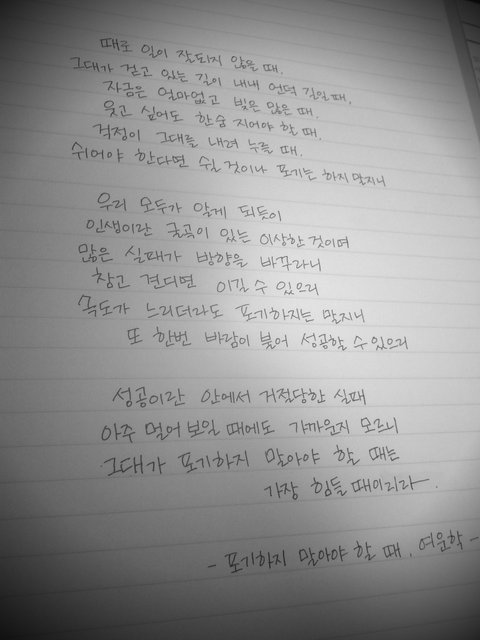 때로 일이 잘되지 않을 때.
그대가 걷고 있는 길이 내내 언덕 길일 때,
자금은 얼마없고 빚은 많은 때.
웃고 싶어도 한숨 지어야 할 때.
걱정이 그대를 내려 누를 때.
쉬어야 한다면 쉴 것이나 포기는 하지 말지니
우리 모두가 알게 되듯이
인생이란 굴곡이 있는 이상한 것이며
많은 실패가 방향을 바꾸라니
참고 견디면 이길 수 있으리
속도가 느리더라도 포기하지는 말지니
또 한번 바람이 불어 성공할 수 있으리
성공이란 안에서 거절당한 실패
아주 멀어 보일 때에도 가까운지 모르니
그대가 포기하지 말아야 할 때는
가장 힘들 때이리라-.
- 포기하지 말아야 할 때, 여운학 -